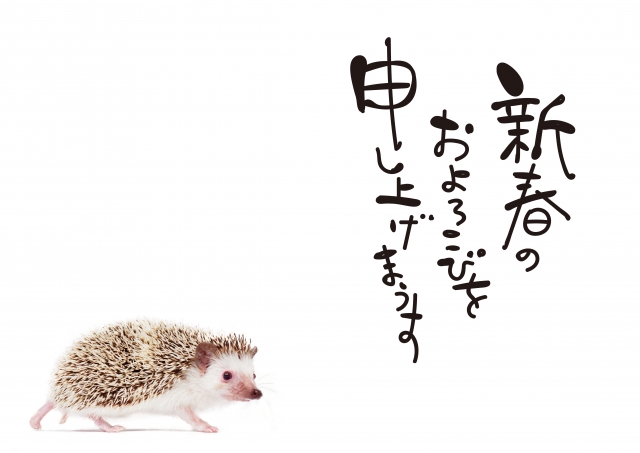 新春の
およろこびを
申し上げまうす